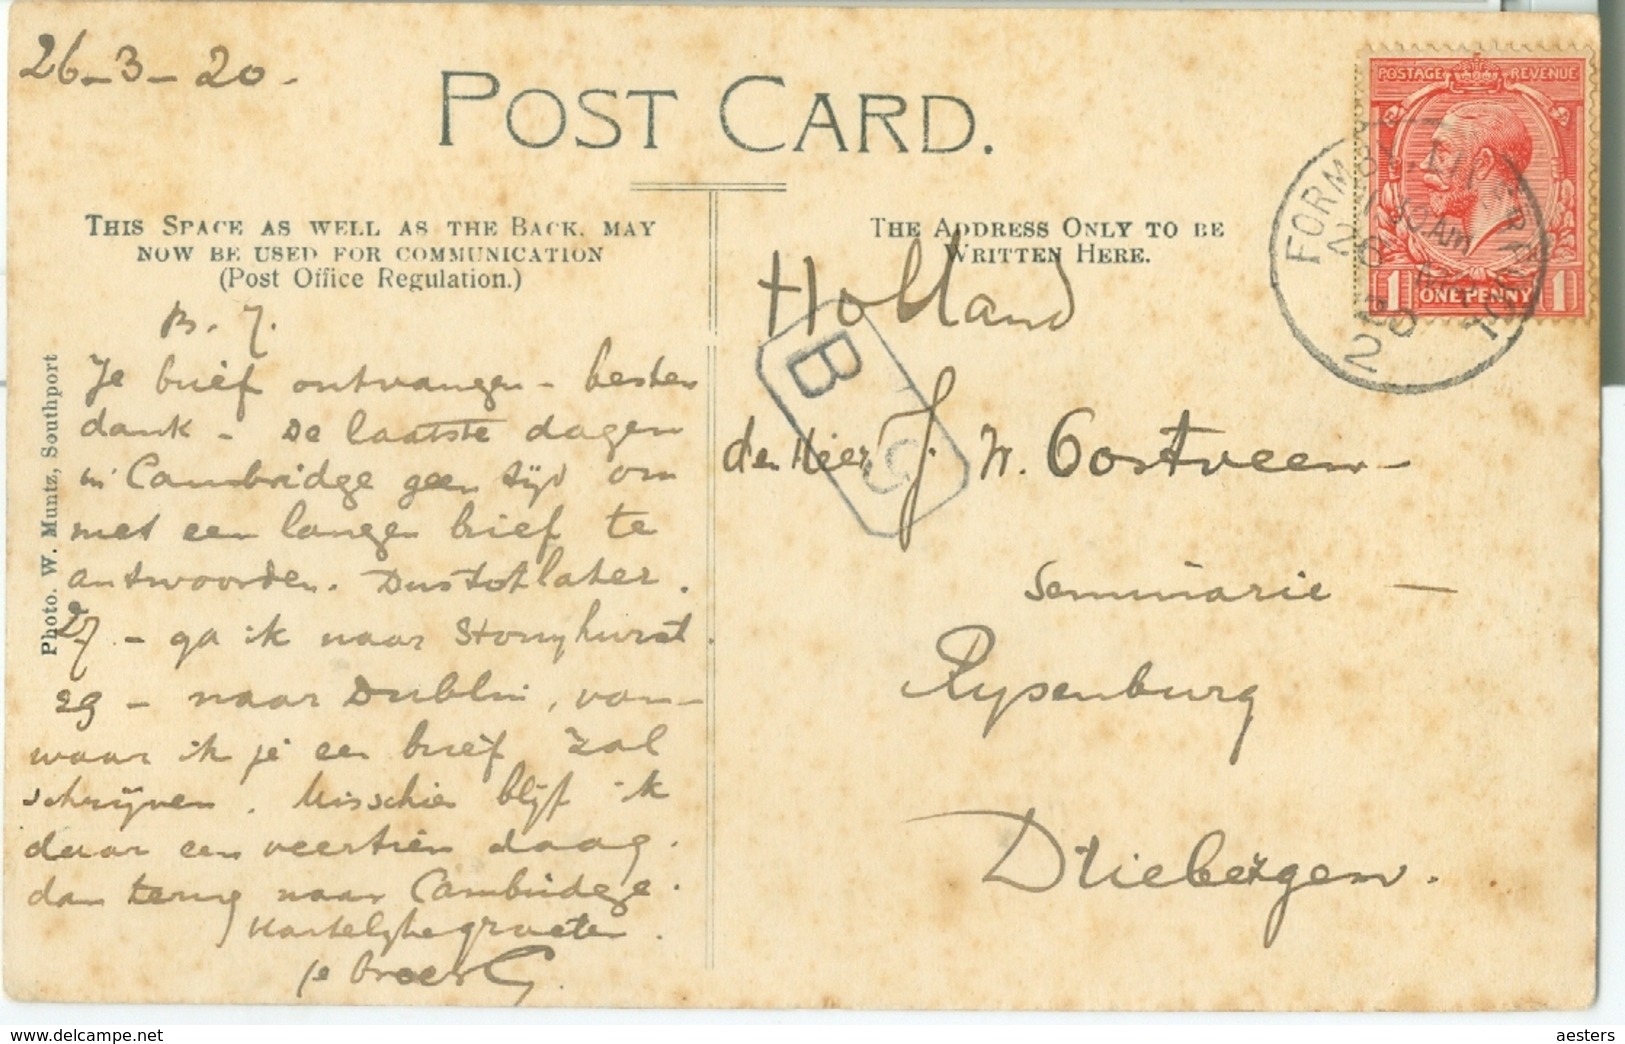 26-3-20.
POST CARD.
THIS SPACE AS WELL AS THE BACK, MAY
NOW BE USED FOR COMMUNICATION
(Post Office Regulation.)
THE ADDRESS ONLY TO BE
WRITTEN HERE.
POSTAGE REVENUE
1 ONE PENNY 1
FORMBY. LIVERPOOL
26 MR
20
B. J.
Je brief ontvangen - besten
dank - De laatste dagen
in Cambridge geen tijd om
met een langen brief te
antwoorden. Dus tot later.
27 - ga ik naar Stonyhurst.
29 - naar Dublin, van-
waar ik je een brief zal
schrijven. Misschien blijf ik
daar een veertien daag.
dan terug naar Cambridge.
Hartelijke groeten.
je broer G.
Photo. W. Muntz, Southport
Holland
B C
den Heer J. W. Oostveen -
Seminarie -
Rysenburg
Driebergen.
https://www.delcampe.net
aesters